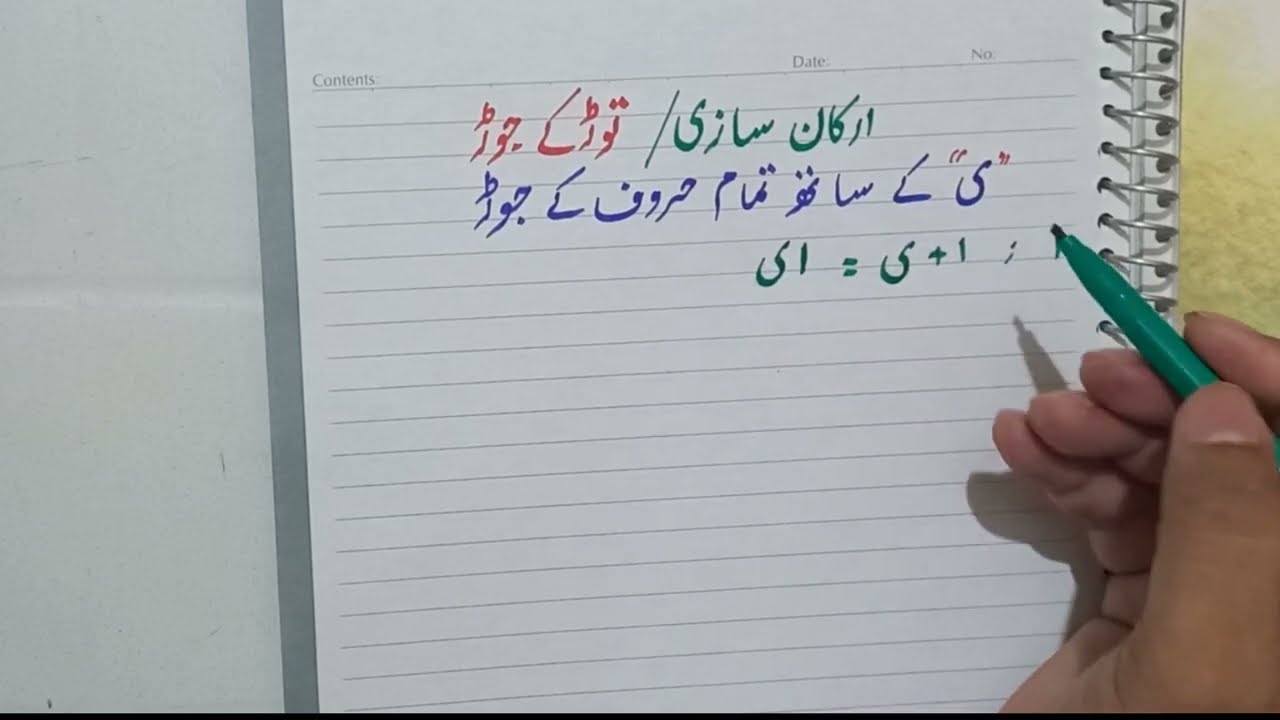 Contents: Date: No:
ارکان سازی/ توڑ کے جوڑ
"ی" کے ساتھ تمام حروف کے جوڑ
ا ؛ ا + ی = ای